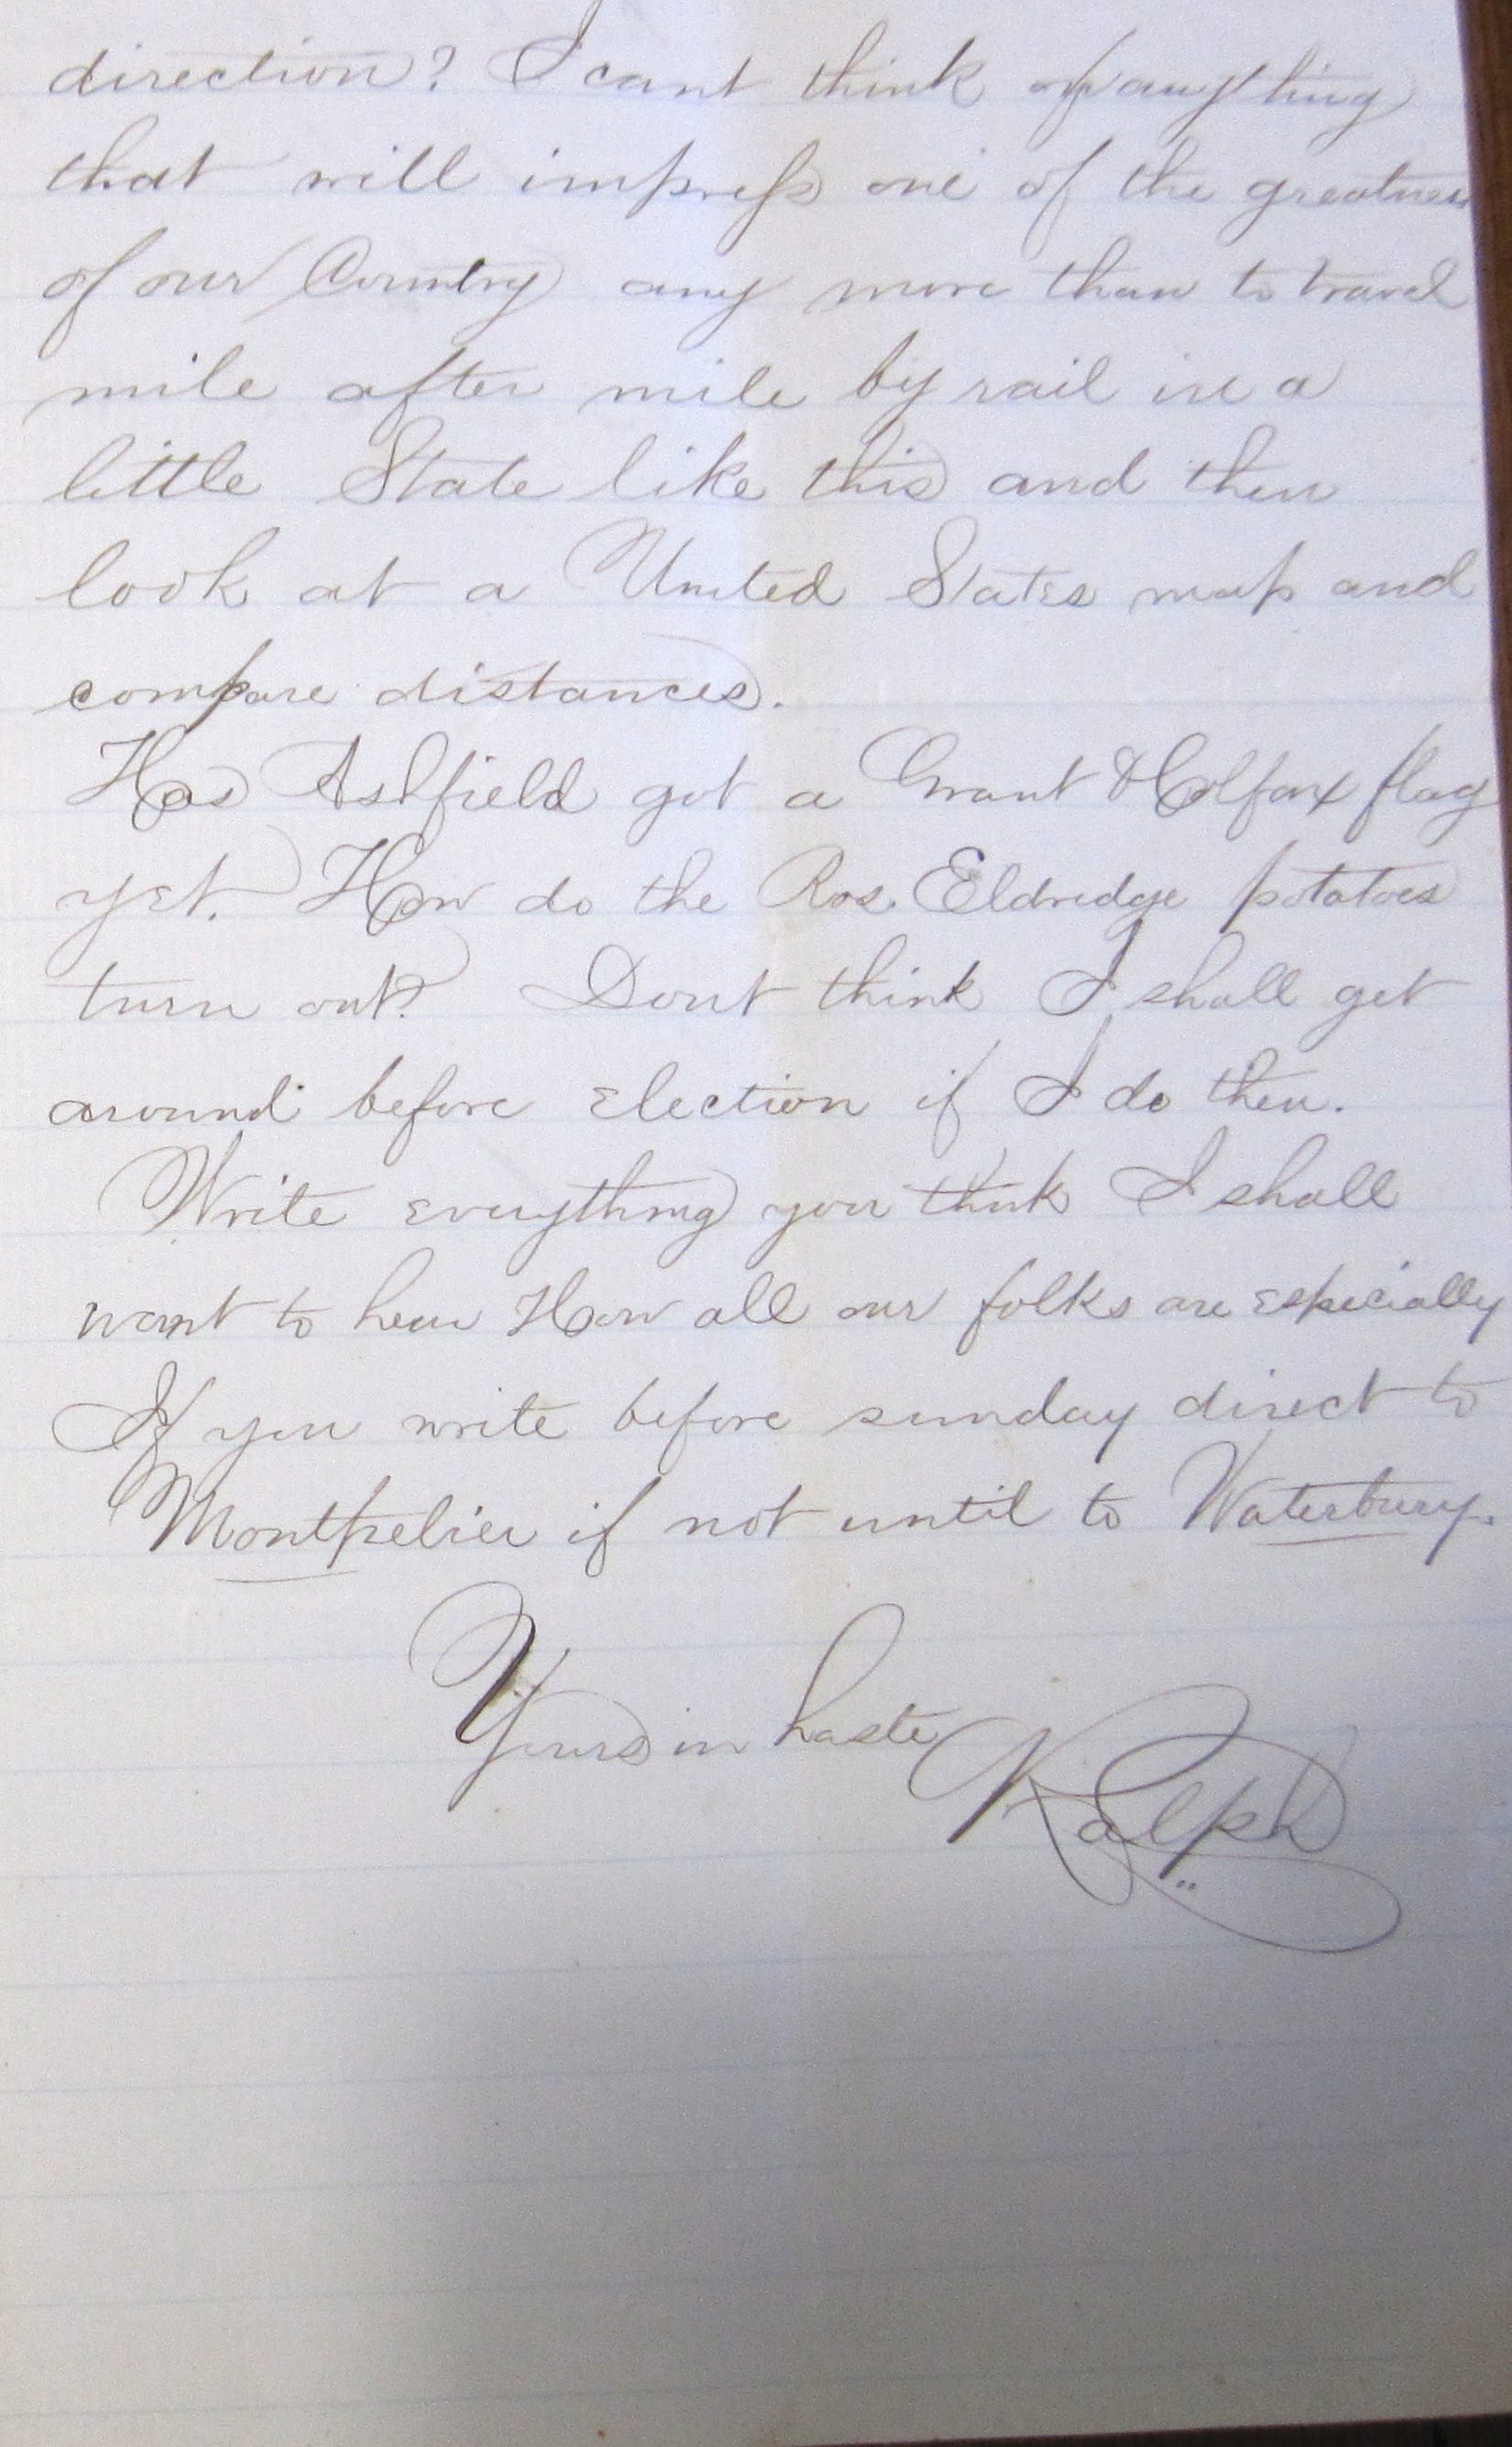 direction? I cant think of anything
that will impress one of the greatness
of our Country any more than to travel
mile after mile by rail in a
little State like this and then
look at a United States map and
compare distances.
Has Ashfield got a Grant & Colfax flag
yet. How do the Ros. Eldredge potatoes
turn out? Dont think I shall get
around before election if I do then.
Write everything you think I shall
want to hear How all our folks are especially
If you write before sunday direct to
Montpelier if not until to Waterbury.
Yours in haste
Ralph